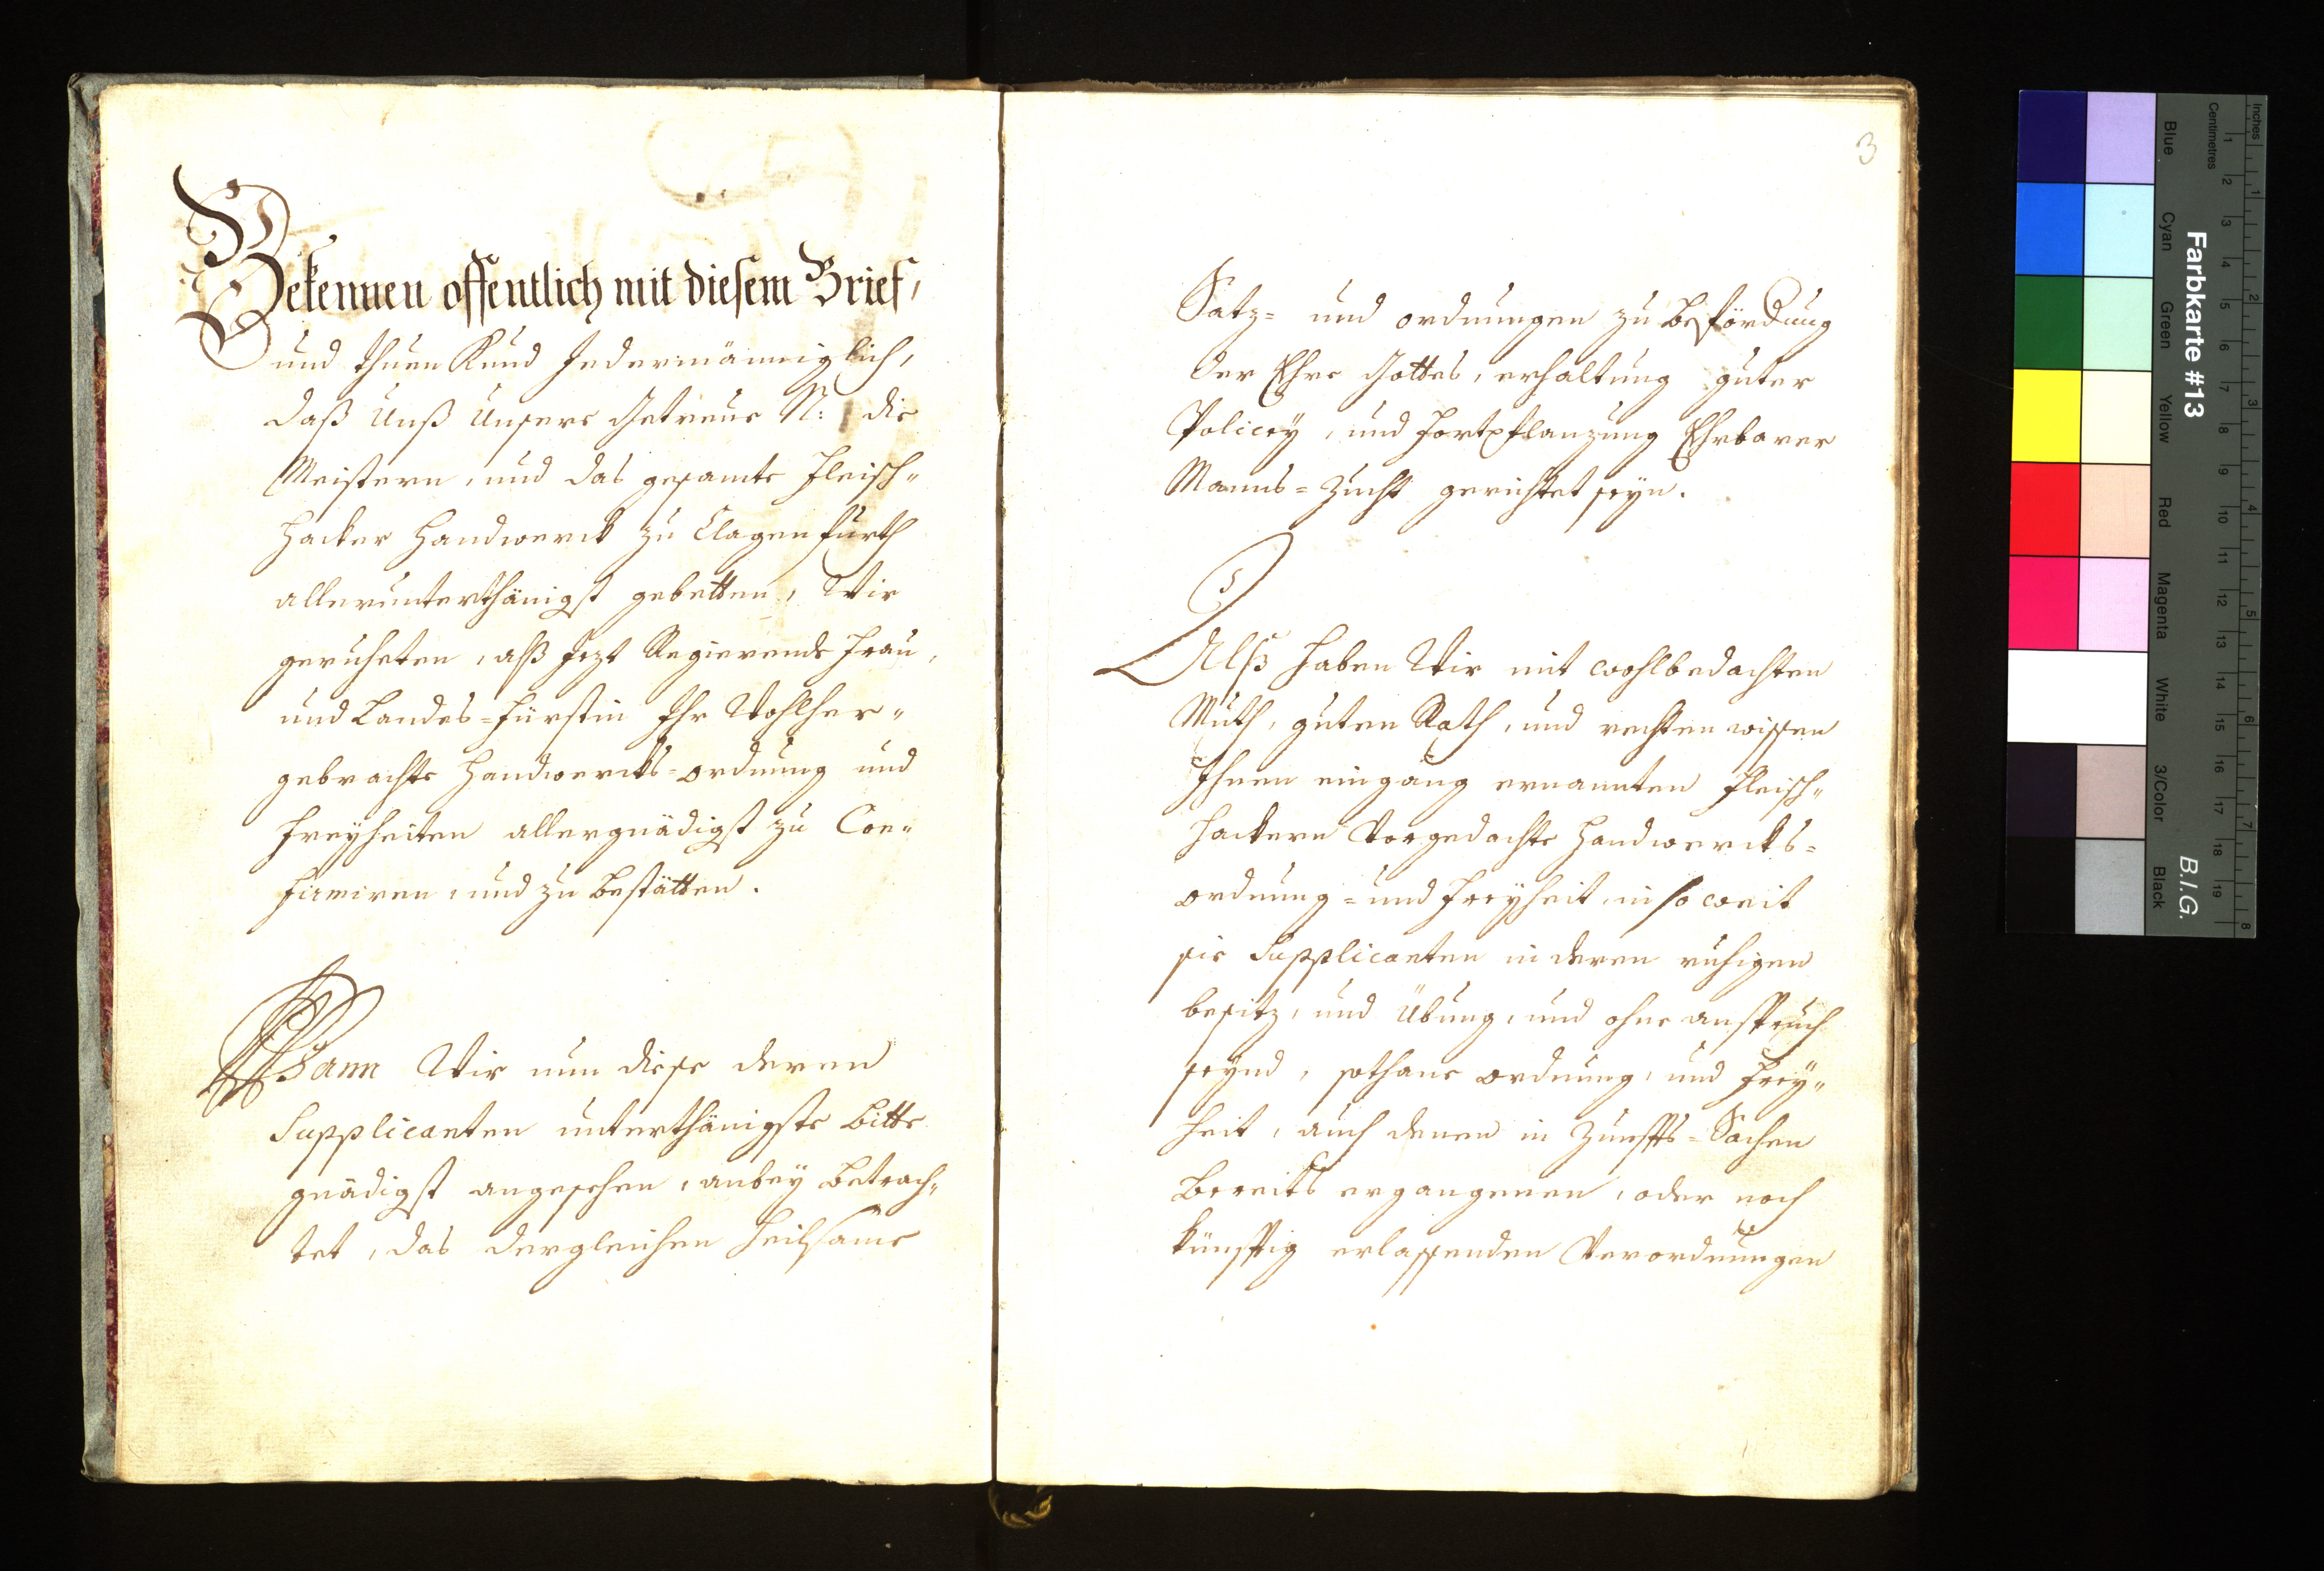 Bekennen offentlich mit diesem Brief,
und thuen Kund Jedermänniglich,
daß Unß Unsere Getreue N: die
Meistern, und das gesamte Fleisch„
hacker Handwerck zu Clagenfurth
allerunterthänigst gebetten, Wir
geruheten, alß Jezt Regierende Frau,
und Landes=Fürstin Ihr Wohlher„
gebrachte Handwercks=ordnung und
Freyheiten allergnädigst zu Con„
firmiren, und zu bestätten.
Wann Wir nun diese deren
Supplicanten unterthänigste Bitte
gnädigst angesehen, anbey betrach„
tet, das dergleichen heilsame
3
Satz= und ordnungen zu befördung
der Ehre Gottes, erhaltung guter
Policey, und fortpflanzung Ehrbarer
Manns=Zucht gerichtet seyn.
Alß haben Wir mit wohlbedachten
Muth, guten Rath, und rechten wissen
Ihnen eingang ernannten Fleisch„
hackern Vorgedachte Handwercks=
ordnung= und Freyheit, in so weit
sie Supplicanten in deren ruhigen
besitz, und Übung, und ohne anspruch
seynd, sothane ordnung, und Frey„
heit, auch denen in Zunffts=Sachen
Bereits ergangenen, oder noch
künfftig erlassenden Verordnungen
Farbkarte #13
B.I.G.
Inches
Centimetres
1 2 3 4 5 6 7 8
1 2 3 4 5 6 7 8 9 10 11 12 13 14 15 16 17 18 19
Blue Cyan Green Yellow Red Magenta White 3/Color Black